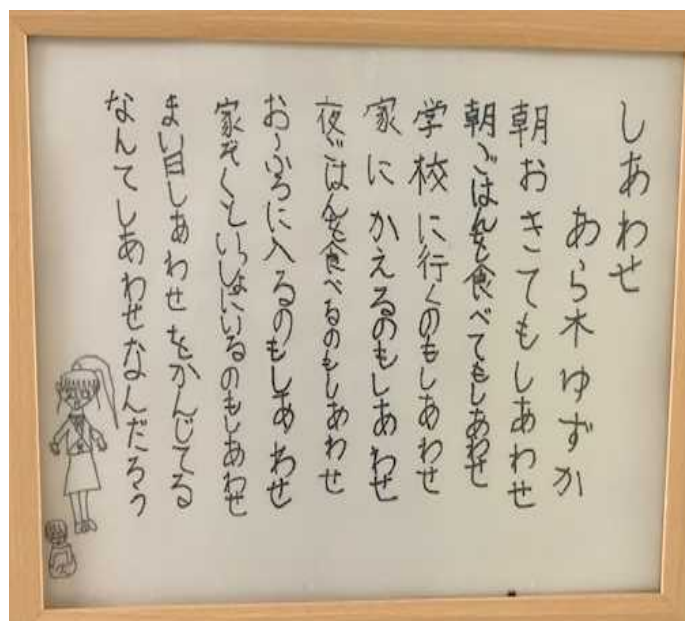 しあわせ
あら木ゆずか
朝おきてもしあわせ
朝ごはんを食べてもしあわせ
学校に行くのもしあわせ
家にかえるのもしあわせ
夜ごはんを食べるのもしあわせ
おふろに入るのもしあわせ
家ぞくといっしょにいるのもしあわせ
まい日しあわせをかんじてる
なんてしあわせなんだろう